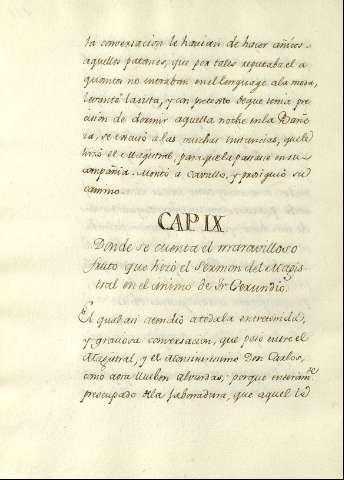 la conversacion le havian de hacer añicos
aquellos patanes, que por tales reputaba el a
quantos no entraban en el lenguage a la moda,
levantó la visita, y con pretexto de que tenia pre
cision de dormir aquella noche en la Bañe
za, se escusó a las muchas instancias, que le
hizo el Magistral, para que la pasase en su
compañia. Montó a cavallo, y prosiguio su
camino.
CAP IX
Donde se cuenta el maravilloso
fruto que hizó el Sermon del Magis
tral en el animo de Fr Gerundio.
El qual asi atendió a toda la entretenida,
y graciosa conversacion, que pasó entre el
Magistral, y el Don Carlos,
como aora llueben albardas, porque enteramte
preocupado de la que aquel le